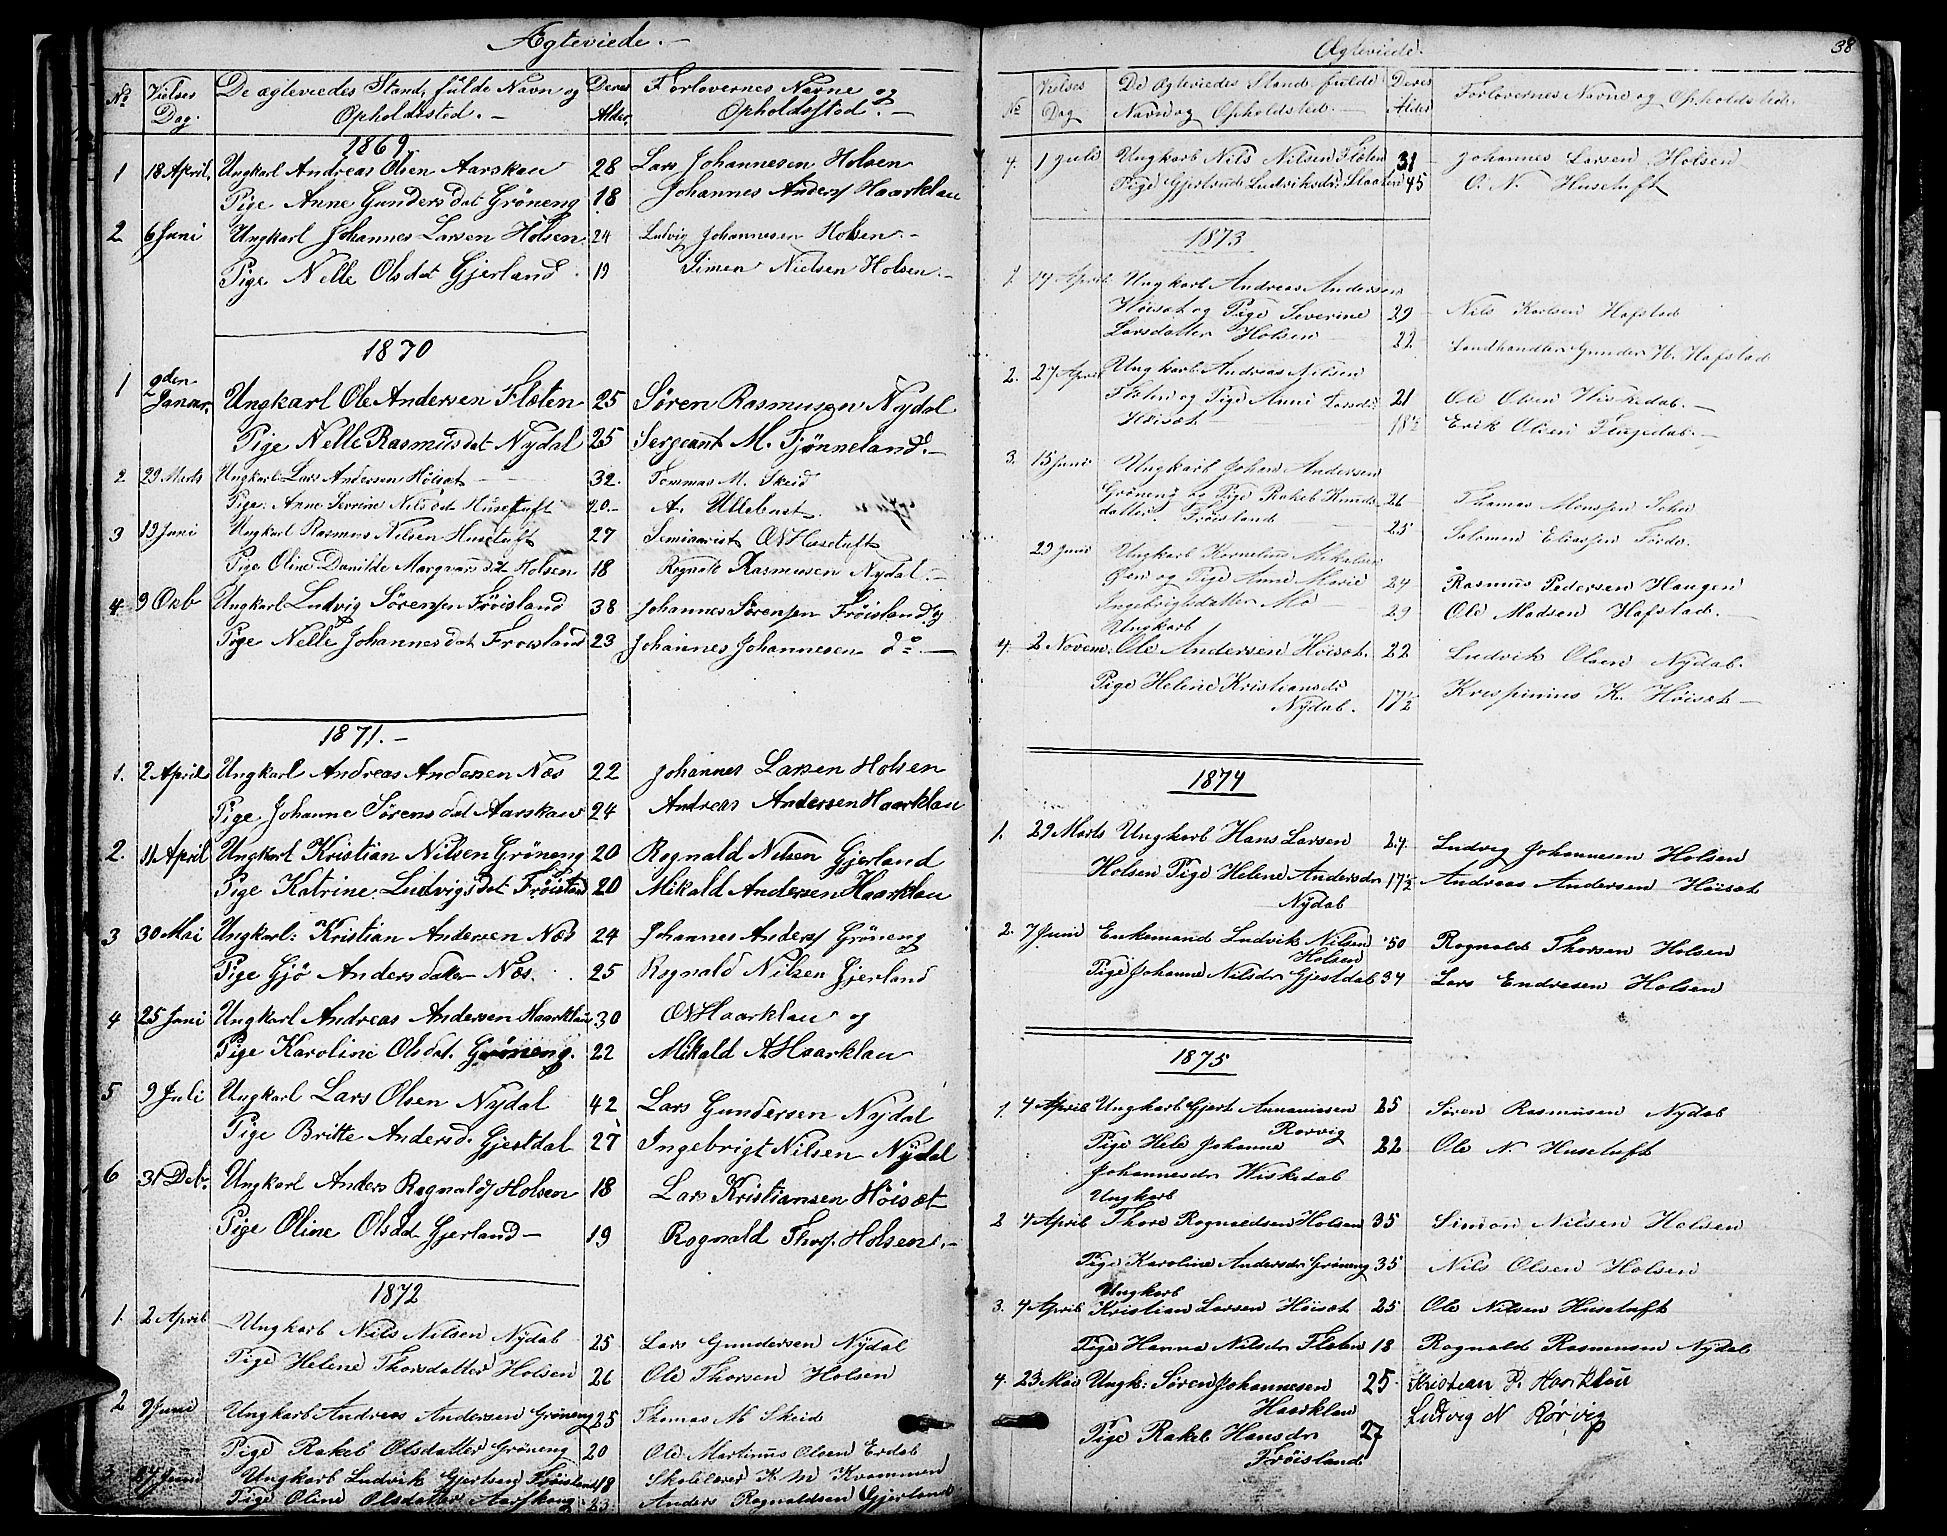 Ægteviede.-
No Vielses Dag. De ægteviedes Stand, fulde Navn og Opholdssted.- Deres Alder. Forlovernes Navne og Opholdssted.-
1869
1 18 April. Ungkarl Andreas Olsen Aarskau 28 Lars Johannesen Holsen
Pige Anne Gundersdat Grøneng 18 Johannes Anders Haarklau
2 6 Juni Ungkarl Johannes Larsen Holsen 24 Ludvig Johannesen Holsen.-
Pige Nelle Olsdat Gjerland 19 Simen Nielsen Holsen.-
1870
1 2den Januar. Ungkarl Ole Andersen Flæten 25 Søren Rasmusen Nydal
Pige Nelle Rasmusdat Nydal 25 Sergeant M. Tjønneland.-
2 29 Marts Ungkarl Lars Andersen Høisæt 32. Tommas M. Skeid
Pige. Anne Severine Nilsdat Husetuft 20- A. Ullebust
3 19 Juni Ungkarl Rasmus Nilsen Husetuft 27 Seminarist ON Husetuft
Pige Oline Danilde Margvarsdat Holsen 18 Rognald Rasmusen Nydal.-
4. 9 Okb Ungkarl Ludvig Sørensen Frøisland 38 Johannes Sørensen Frøisland og
Pige Nelle Johannesdat Frøisland 23 Johannes Johannesen do.-
1871.-
1. 2 April Ungkarl Andreas Andersen Næs 22 Johannes Larsen Holsen
Pige Johanne Sørensdat Aarskau 24 Andreas Andersen Haarklau
2. 11 April Ungkarl Kristian Nilsen Grøneng 20 Rognald Nilsen Gjerland
Pige Katrine Ludvigsdat Frøisland 20 Mikald Andersen Haarklau
3 30 Mai Ungkarl: Kristian Andersen Næs 24 Johannes Anders Grøneng
Pige Gjø Andersdater Næs. 25 Rognald Nilsen Gjerland
4 25 Juni Ungkarl Andreas Andersen Haarklau 30 ON Haarklau og
Pige Karoline Olsdat. Grøneng. 22 Mikald A Haarklau
5 9 Juli Ungkarl Lars Olsen Nydal 42 Lars Gundersen Nydal
Pige Britte Andersd. Gjestdal 27 Ingebrigt Nilsen Nydal
6 31 Deb. Ungkarl Anders Rognalds Holsen 18 Lars Kristiansen Høisæt
Pige Oline Olsdat Gjerland- 19 Rognald Thors. Holsen.-
1872
1. 2 April Ungkarl Nils Nilsen Nydal 25 Lars Gundersen Nydal
Pige Helene Thorsdatter Holsen 26 Ole Thorsen Holsen
2 9 Juni Ungkarl Andreas Andersen Grøneng 25 Thomas M Skeid
Pige Rakel Olsdatter Grøneng 20 Ole Martinus Olsen Erdal
3 17 Juni Ungkarl Ludvik Gjertsen Frøisland 18 Skolelærer K M Kvammen
Pige Oline Olsdatter Aarskoug 23 Anders Rognaldsen Gjerland
Ægteviede. 38
No Vielses Dag De ægteviedes Stand fulde Navn og Opholdsted.- Deres Alder Forlovernes Navne og Opholdsted.
4. 1 Juli Ungkarl Nils Nilsen Flæten 31 Johannes Larsen Holsen
Pige Gjertrude Ludviksdr. Slaaten 45 O. N. Husetuft
1873
1. 14 April Ungkarl Andreas Andersen
Høisæt og Pige Severine 29 Nils Karlsen Hafstad
Larsdatter Holsen 22 Landhandler Gunder H. Hafstad
2. 27 April Ungkarl Andreas Nilsen
Flæten og Pige Anne Larsdr. 21 Ole Olsen Wiskedal.-
Høisæt 18½ Erik Olsen Flugedal.-
3. 15 Juni Ungkarl Johan Andersen
Grøneng og Pige Rakel Knuds 26 Thomas Monssen Sehu
datter. Frøisland 25 Salomon Eliassen Førde.
29 Juni Ungkarl Kornelius Mikalsen
Øen og Pige Anne Marie 24 Rasmus Pedersen Haugen
Ingebrigtsdatter Mo 29 Ole Madsen Hafstad.-
Ungkarl
4. 2 Novem. Ole Andersen Høisæt. 22 Ludvik Olsen Nydal.
Pige Helene Kristiansdr Nydal. 17½ Krespinius K. Høisæt-
1874
1. 29 Marts Ungkarl Hans Larsen 24. Ludvig Johannesen Holsen
Holsen Pige Helene Andersdr 17½ Andreas Andersen Høisæt
Nydal
2. 7 Juni Enkemand Ludvik Nilsen 50 Rognald Thorsen Holsen
Holsen
Pige Johanne Nilsdr Gjestdal 34 Lars Endresen Holsen
1875
1. 4 April Ungkarl Gjert Annaniasen 25 Søren Rasmusen Nydal
Rørvig
Pige Hele Johanne 22 Ole N. Husetuft
Johannesdr Wiskedal
Ungkarl
2 4 April Thore Rognaldsen Holsen 35 Simon Nilsen Holsen
Pige Karoline Andersdr Grøneng 35 Nils Olsen Holsen
Ungkarl
3. 4 April Kristian Larsen Høisæt 25 Ole Nilsen Husetuft
Pige Hanna Nilsdr Flæten 18 Rognald Rasmusen Nydal
4. 23 Mai Ungk: Søren Johannesen 25. Kristian P. Harklau
Haarklau Ludvig N Rørvig
Pige Rakel Hansdr 27
Frøisland